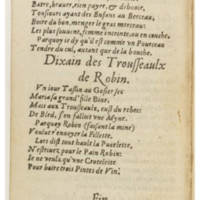 Batre, brauer, rien payer, & debuoir,
Tousiours ayant des Enfans au Berceau,
Boire du bon, menger le gras morceau:
Les plus souuent, femme enceinte, ou en couche.
Parquoy ie dy qu'il est comme vn Pourceau
Tendre du cul, autant que de la bouche.
Dixain des Trousseaulx
de Robin.
Vn iour Tassin au Gosier sec
Maria sa grand' fille Bour,
Mais aux Trousseaulx, eust du rebec:
De Bled, s'en fallut vne Myne.
Parquoy Robin (faisant la mine)
Voulut r'enuoyer la Fillette,
Lors dist tout hault la Pucelette,
N'estriuez, pour le Pain Robin:
Ie ne veulx qu'vne Crousteliete
Pour boire trois Pintes de Vin.
Fin